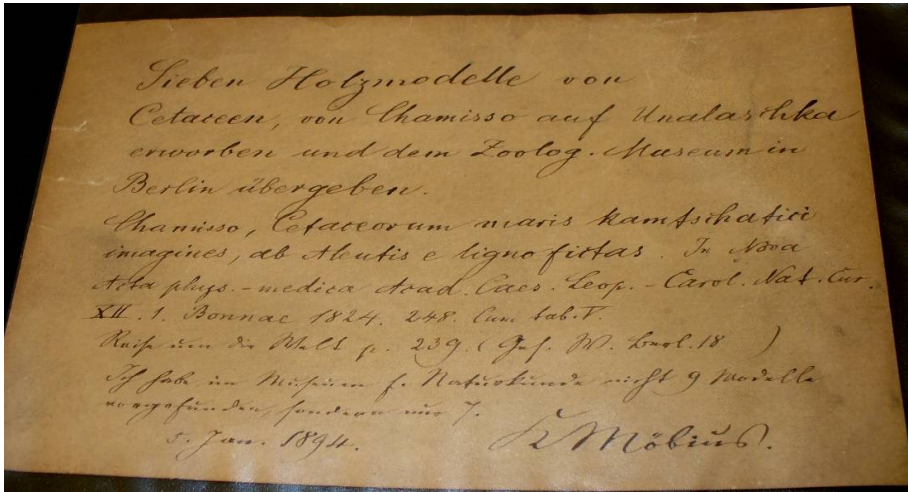 Sieben Holzmodelle von
Cetaceen, von Chamisso auf Unalaschka
erworben und dem Zoolog. Museum in
Berlin übergeben.
Chamisso, Cetaceorum maris Kamtschatici
imagines, ab Aleutis e ligno fictas. In Nova
Acta phys.-medica Acad. Caes. Leop.-Carol. Nat. Cur.
XII. 1. Bonnae 1824. 248. Cum tab. V.
Reise um die Welt p. 239. (Ges. W. Berl. 18 )
Ich habe im Museum f. Naturkunde nicht 9 Modelle
vorgefunden, sondern nur 7.
5. Jan. 1894. K Möbius.